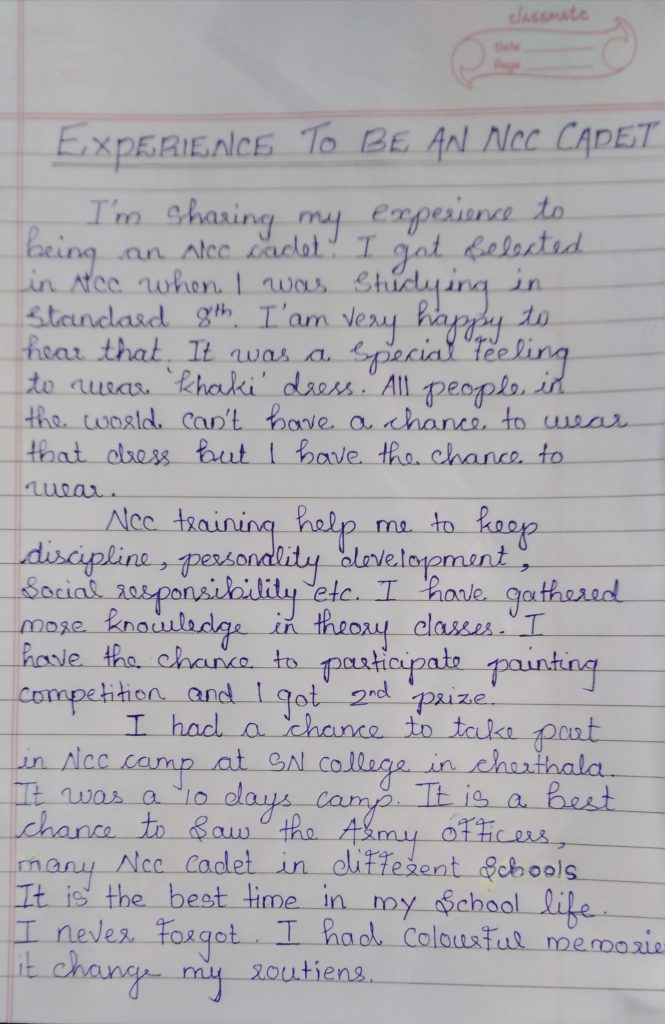 classmate
Date
Page
EXPERIENCE TO BE AN NCC CADET
I'm sharing my experience to
being an NCC cadet. I got selected
in NCC when I was studying in
Standard 8th. I'am very happy to
hear that. It was a special feeling
to wear 'khaki' dress. All people in
the world can't have a chance to wear
that dress but I have the chance to
wear.
NCC training help me to keep
discipline, personality development,
Social responsibility etc. I have gathered
more knowledge in theory classes. I
have the chance to participate painting
competition and I got 2nd prize.
I had a chance to take part
in NCC camp at SN college in cherthala.
It was a 10 days camp. It is a best
chance to saw the Army officers,
many NCC cadet in different schools
It is the best time in my school life.
I never forgot. I had colourful memorie
it change my routiens.